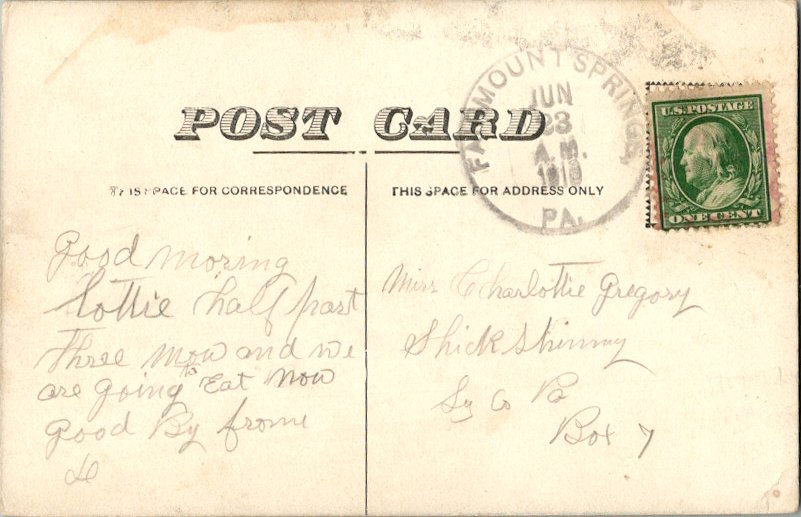 POST CARD
THIS SPACE FOR CORRESPONDENCE
THIS SPACE FOR ADDRESS ONLY
FAIRMOUNT SPRINGS,
JUN
23
A.M.
PA.
U.S. POSTAGE
ONE CENT
Good moring
Lottie half past
Three mow and we
are going to Eat now
Good By frome
Miss Charlottie Gregory
Shickshinny
Co Pa
Box 7